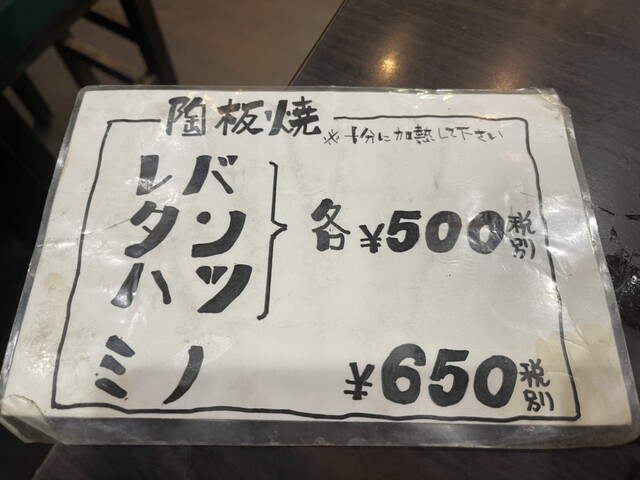 陶板焼 ※十分に加熱して下さい
レバ
タン 各¥500税別
ハツ
ミノ ¥650税別